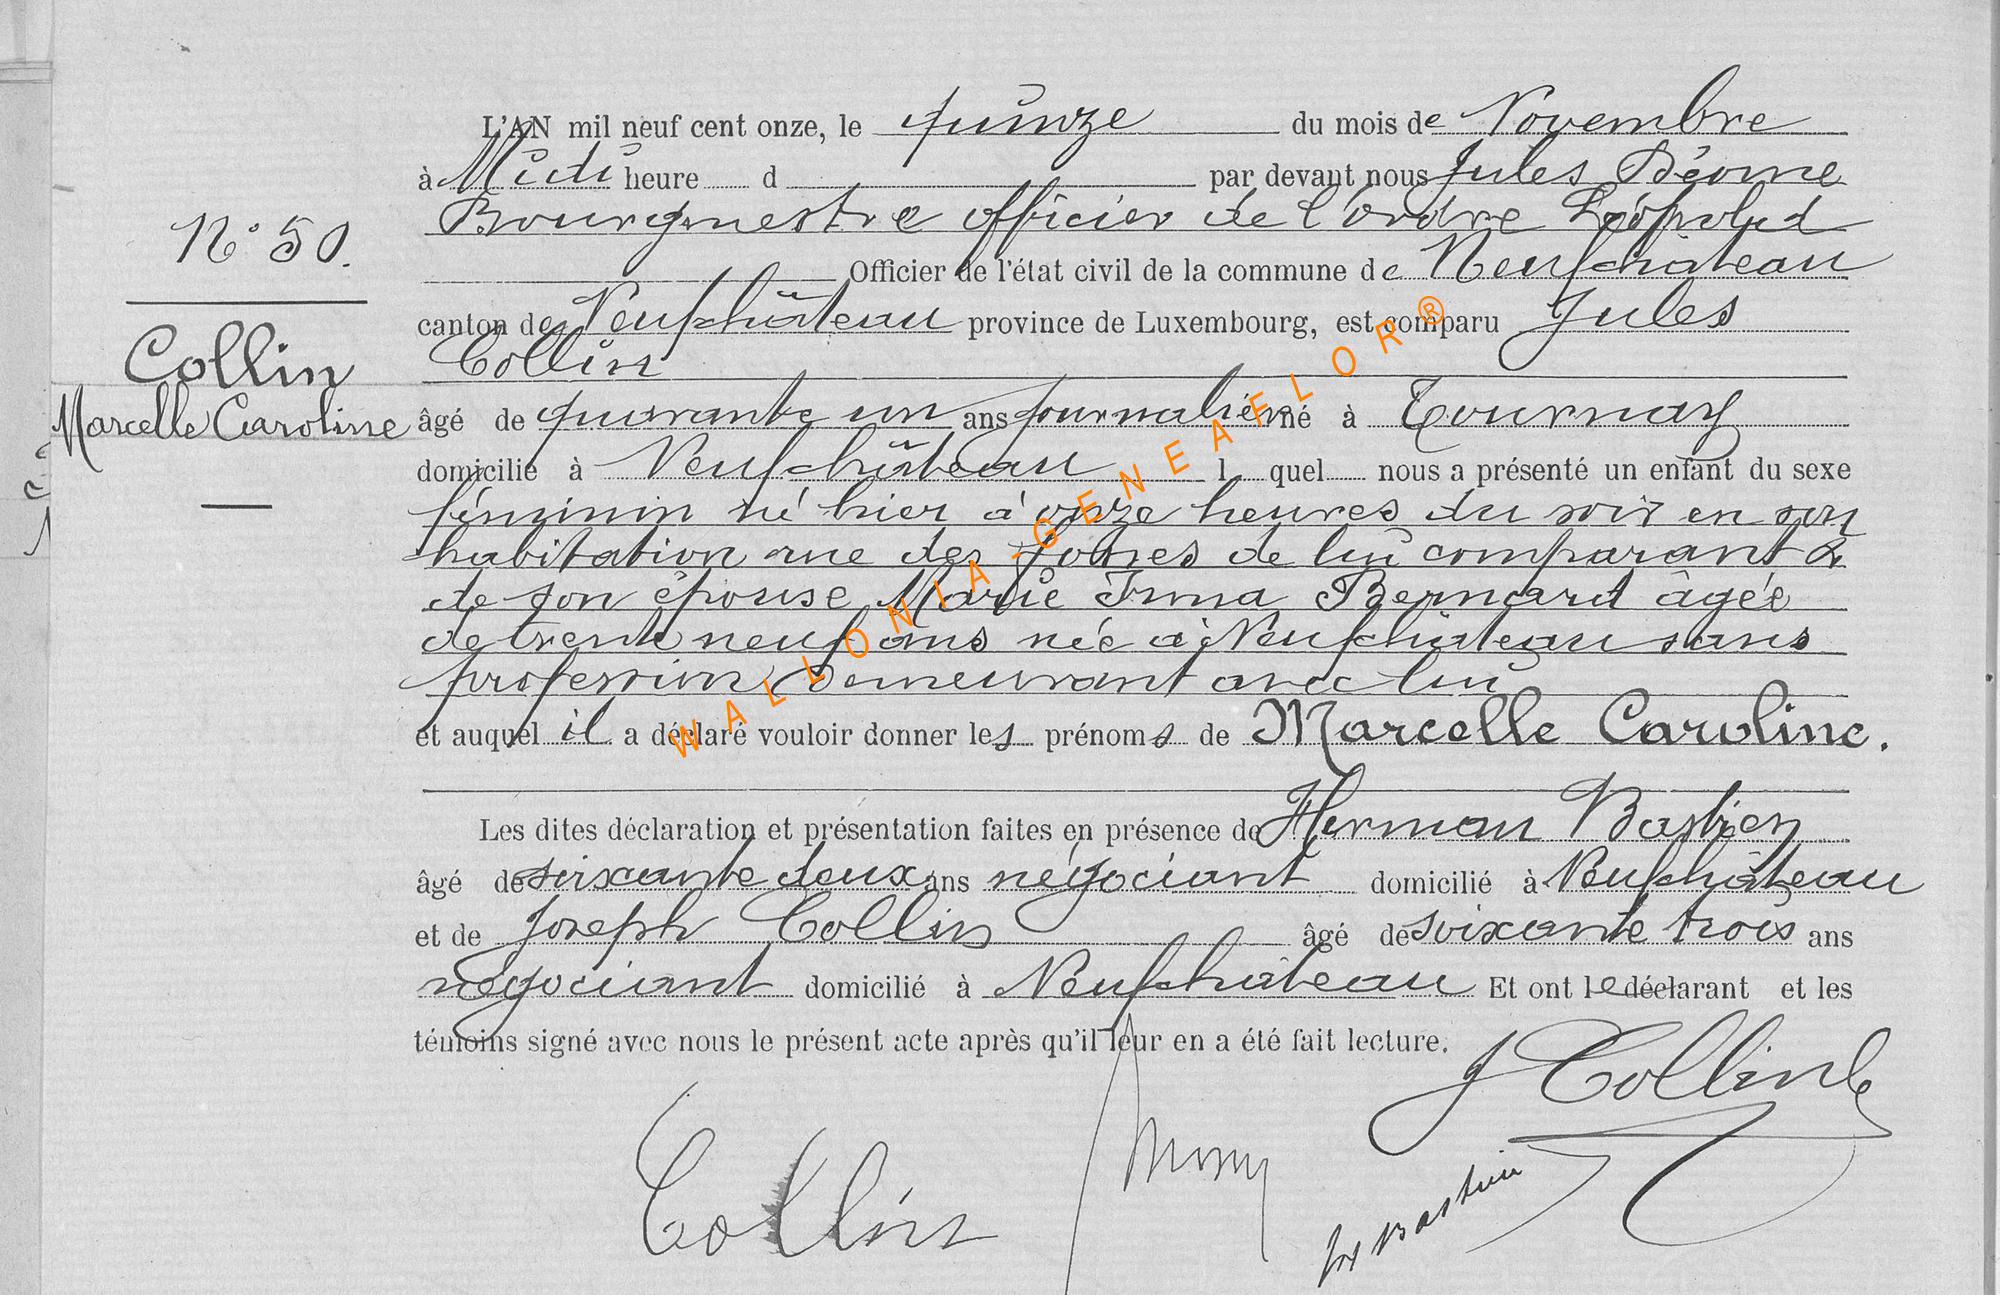 N° 50.
Collin
Marcelle Caroline
L'AN mil neuf cent onze, le quinze du mois de Novembre
à Midi heure d par devant nous Jules
Bourgmestre officier de l'ordre Léopold
Officier de l'état civil de la commune de Neufchâteau
canton de Neufchâteau province de Luxembourg, est comparu Jules
Collin
âgé de quarante un ans journalier né à Tournay
domicilié à Neufchâteau l quel nous a présenté un enfant du sexe
féminin né hier à onze heures du soir en son
habitation rue des de lui comparant &
de son épouse Marie Irma Bernard âgée
de trente neuf ans née à Neufchâteau sans
profession demeurant avec lui
et auquel il a déclaré vouloir donner les prénoms de Marcelle Caroline.
Les dites déclaration et présentation faites en présence de Herman Bastien
âgé de soixante deux ans négociant domicilié à Neufchâteau
et de Joseph Collin âgé de soixante trois ans
négociant domicilié à Neufchâteau Et ont le déclarant et les
témoins signé avec nous le présent acte après qu'il leur en a été fait lecture.
J Collin
Collin
Bastien
WALLONIA-GENEAFLOR®